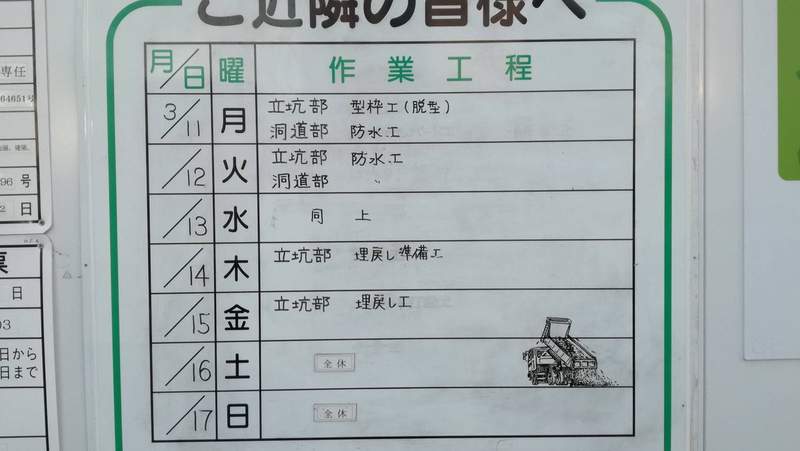 ご近隣の皆様へ
月/日 曜 作業工程
3/11 月 立坑部 型枠工(脱型)
洞道部 防水工
/12 火 立坑部 防水工
洞道部 〃
/13 水 同上
/14 木 立坑部 埋戻し準備工
/15 金 立坑部 埋戻し工
/16 土 全休
/17 日 全休
専任
64651号
96 号
2 日
票
日
03
日から
日まで